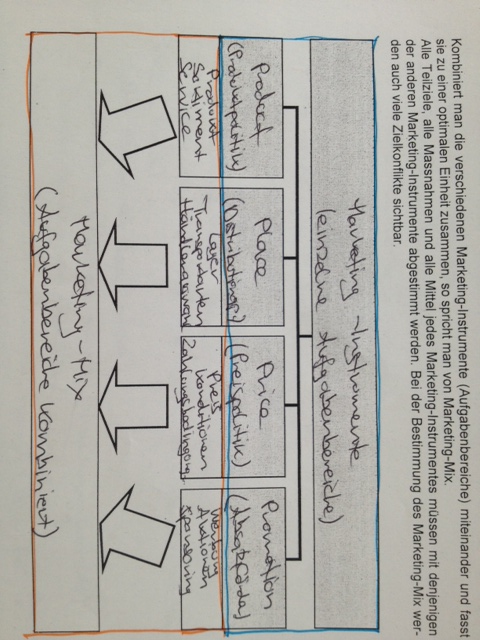 Kombiniert man die verschiedenen Marketing-Instrumente (Aufgabenbereiche) miteinander und fasst
sie zu einer optimalen Einheit zusammen, so spricht man von Marketing-Mix.
Alle Teilziele, alle Massnahmen und alle Mittel jedes Marketing-Instrumentes müssen mit denjenigen
der anderen Marketing-Instrumente abgestimmt werden. Bei der Bestimmung des Marketing-Mix wer-
den auch viele Zielkonflikte sichtbar.
Marketing-Instrumente
(einzelne Aufgabenbereiche)
Product
(Produktpolitik)
Produkt
Sortiment
Service
Place
Lager
Price
(Preispolitik)
Preis
Konditionen
Zahlungsbedingung
Promotion
Werbung
Aktionen
Sponsoring
Marketing-Mix
(Aufgabenbereiche kombiniert)